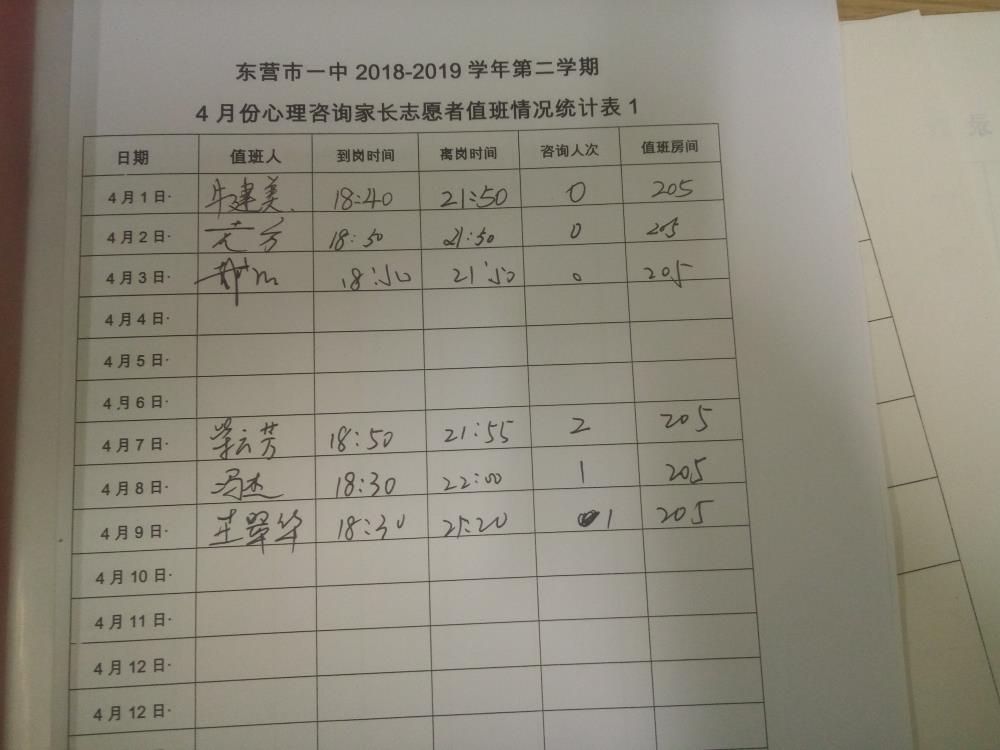 东营市一中 2018-2019 学年第二学期
4 月份心理咨询家长志愿者值班情况统计表 1
日期 值班人 到岗时间 离岗时间 咨询人次 值班房间
4 月 1 日· 牛建美 18:40 21:50 0 205
4 月 2 日· 18:50 21:50 0 205
4 月 3 日· 18:50 21:50 0 205
4 月 4 日·
4 月 5 日·
4 月 6 日·
4 月 7 日· 18:50 21:55 2 205
4 月 8 日· 冯杰 18:30 22:00 1 205
4 月 9 日· 18:30 21:20 1 205
4 月 10 日·
4 月 11 日·
4 月 12 日·
4 月 12 日·